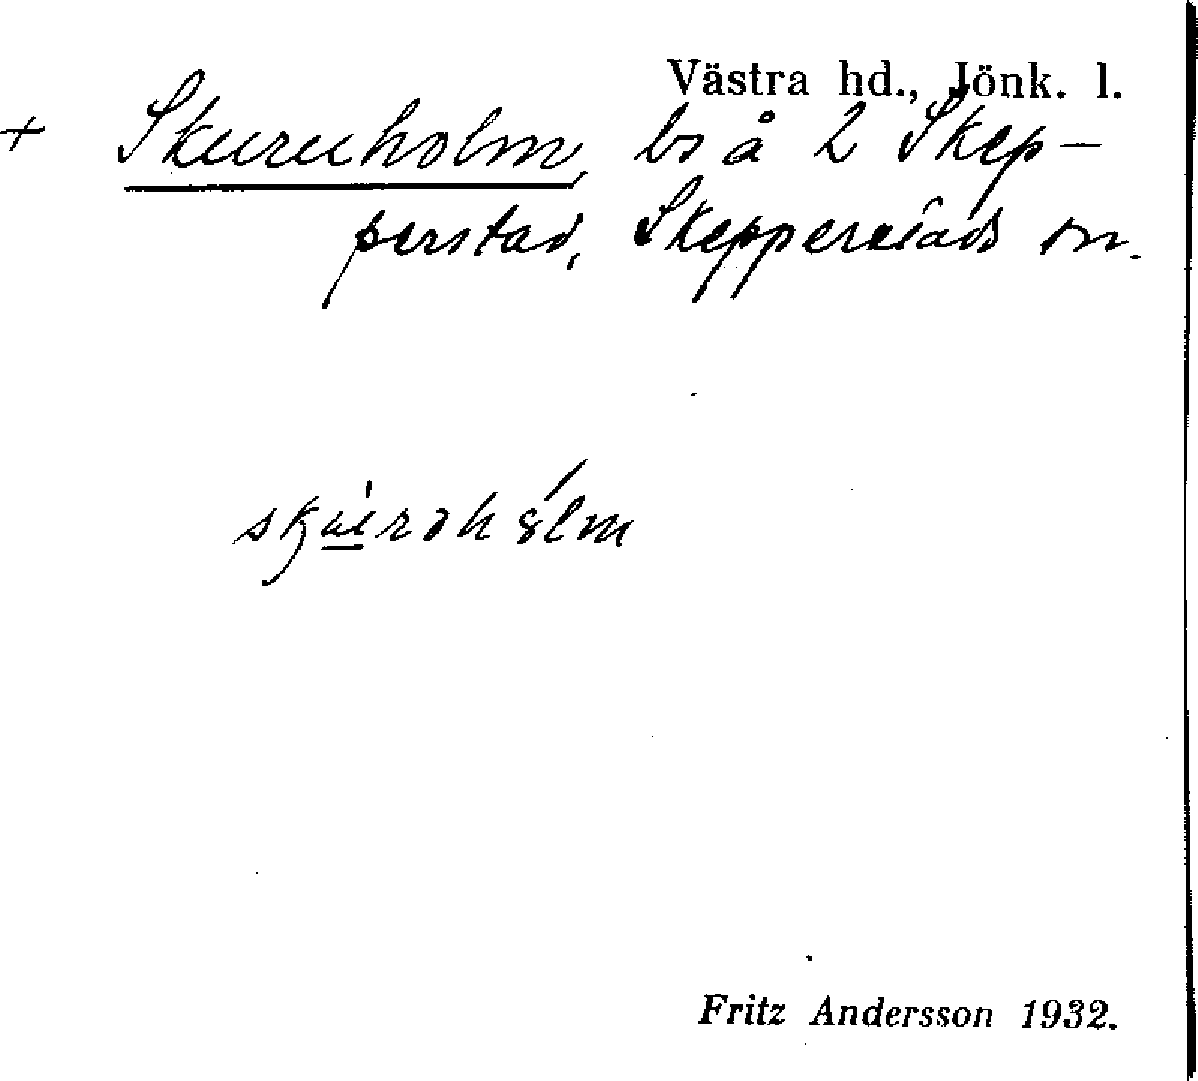 Västra hd., Jönk. l.
+ Skuruholm, bs å 2 Skep-
perstad, Skepperstads sn.
skúrəhólm
Fritz Andersson 1932.